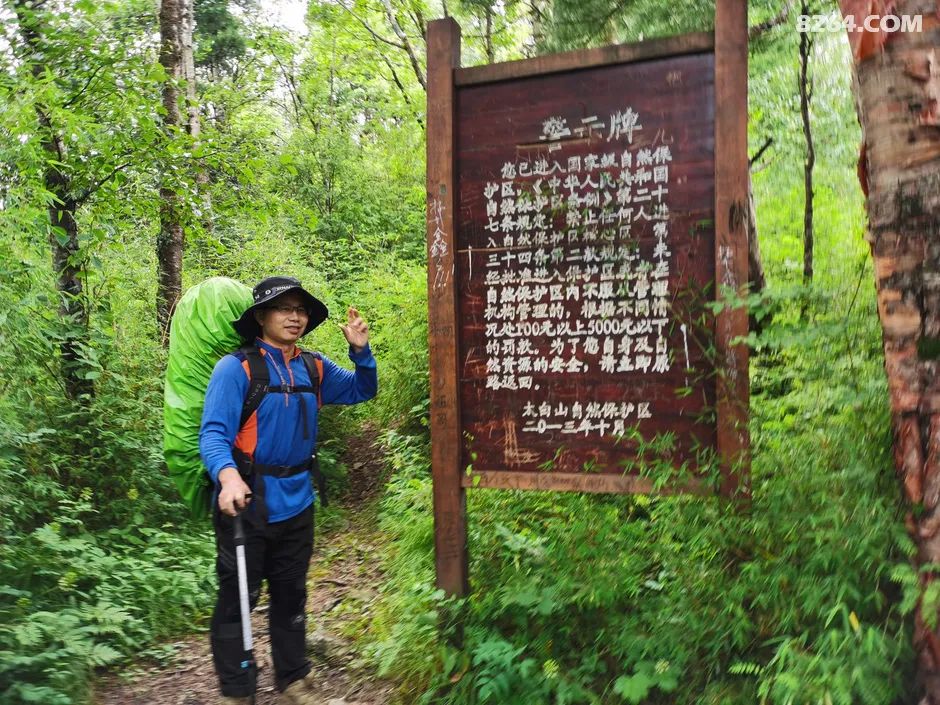 8264.COM
警示牌
您已进入国家级自然保
护区《中华人民共和国
自然保护区条例》第二十
七条规定：禁止任何人进
入自然保护区核心区。第
三十四条第二款规定：未
经批准进入保护区或者在
自然保护区内不服从管理
机构管理的，根据不同情
况处100元以上5000元以下
的罚款。为了您自身及自
然资源的安全，请立即原
路返回。
太白山自然保护区
二〇一三年十月